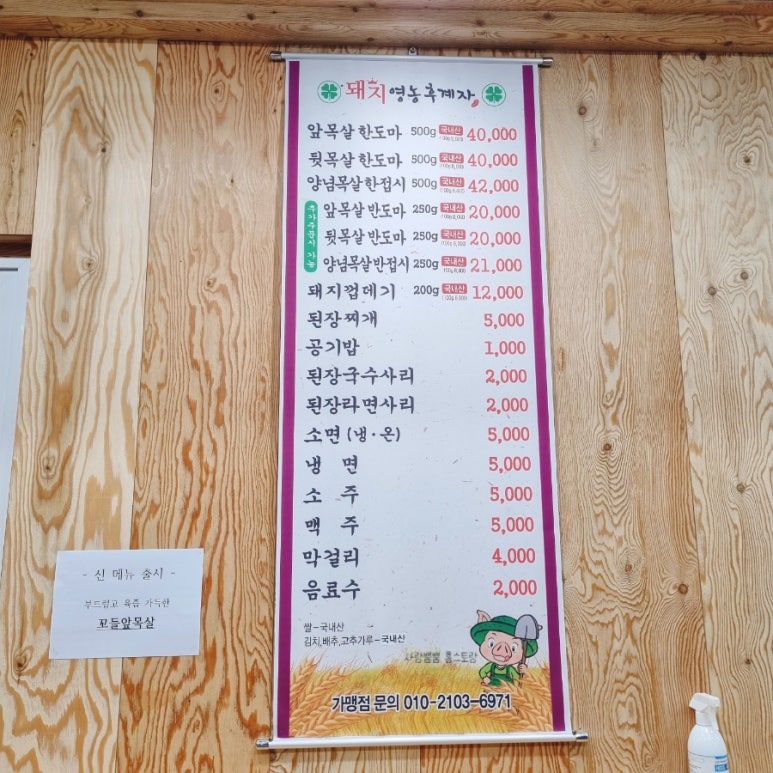 돼지 영농후계자
앞목살 한도마 500g 국내산 40,000
뒷목살 한도마 500g 국내산 40,000
양념목살한접시 500g 국내산 42,000
추가주문시 가능
앞목살 반도마 250g 국내산 20,000
뒷목살 반도마 250g 국내산 20,000
양념목살반접시 250g 국내산 21,000
돼지껍데기 200g 국내산 12,000
된장찌개 5,000
공기밥 1,000
된장국수사리 2,000
된장라면사리 2,000
소면 (냉·온) 5,000
냉 면 5,000
소 주 5,000
맥 주 5,000
막걸리 4,000
음료수 2,000
쌀-국내산
김치,배추,고추가루-국내산
가맹점 문의 010-2103-6971
- 신 메뉴 출시 -
부드럽고 육즙 가득한
꼬들앞목살